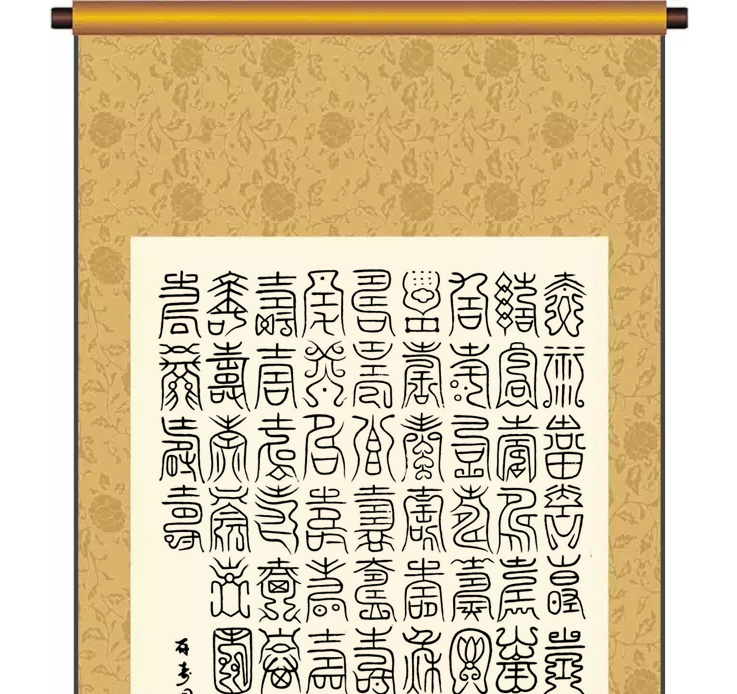 壽壽壽壽壽壽
壽壽壽壽壽壽
壽壽壽壽壽壽
壽壽壽壽壽壽
壽壽壽壽壽壽
壽壽壽壽壽壽
壽壽壽壽壽壽
壽壽壽壽壽壽
壽壽壽壽
百寿